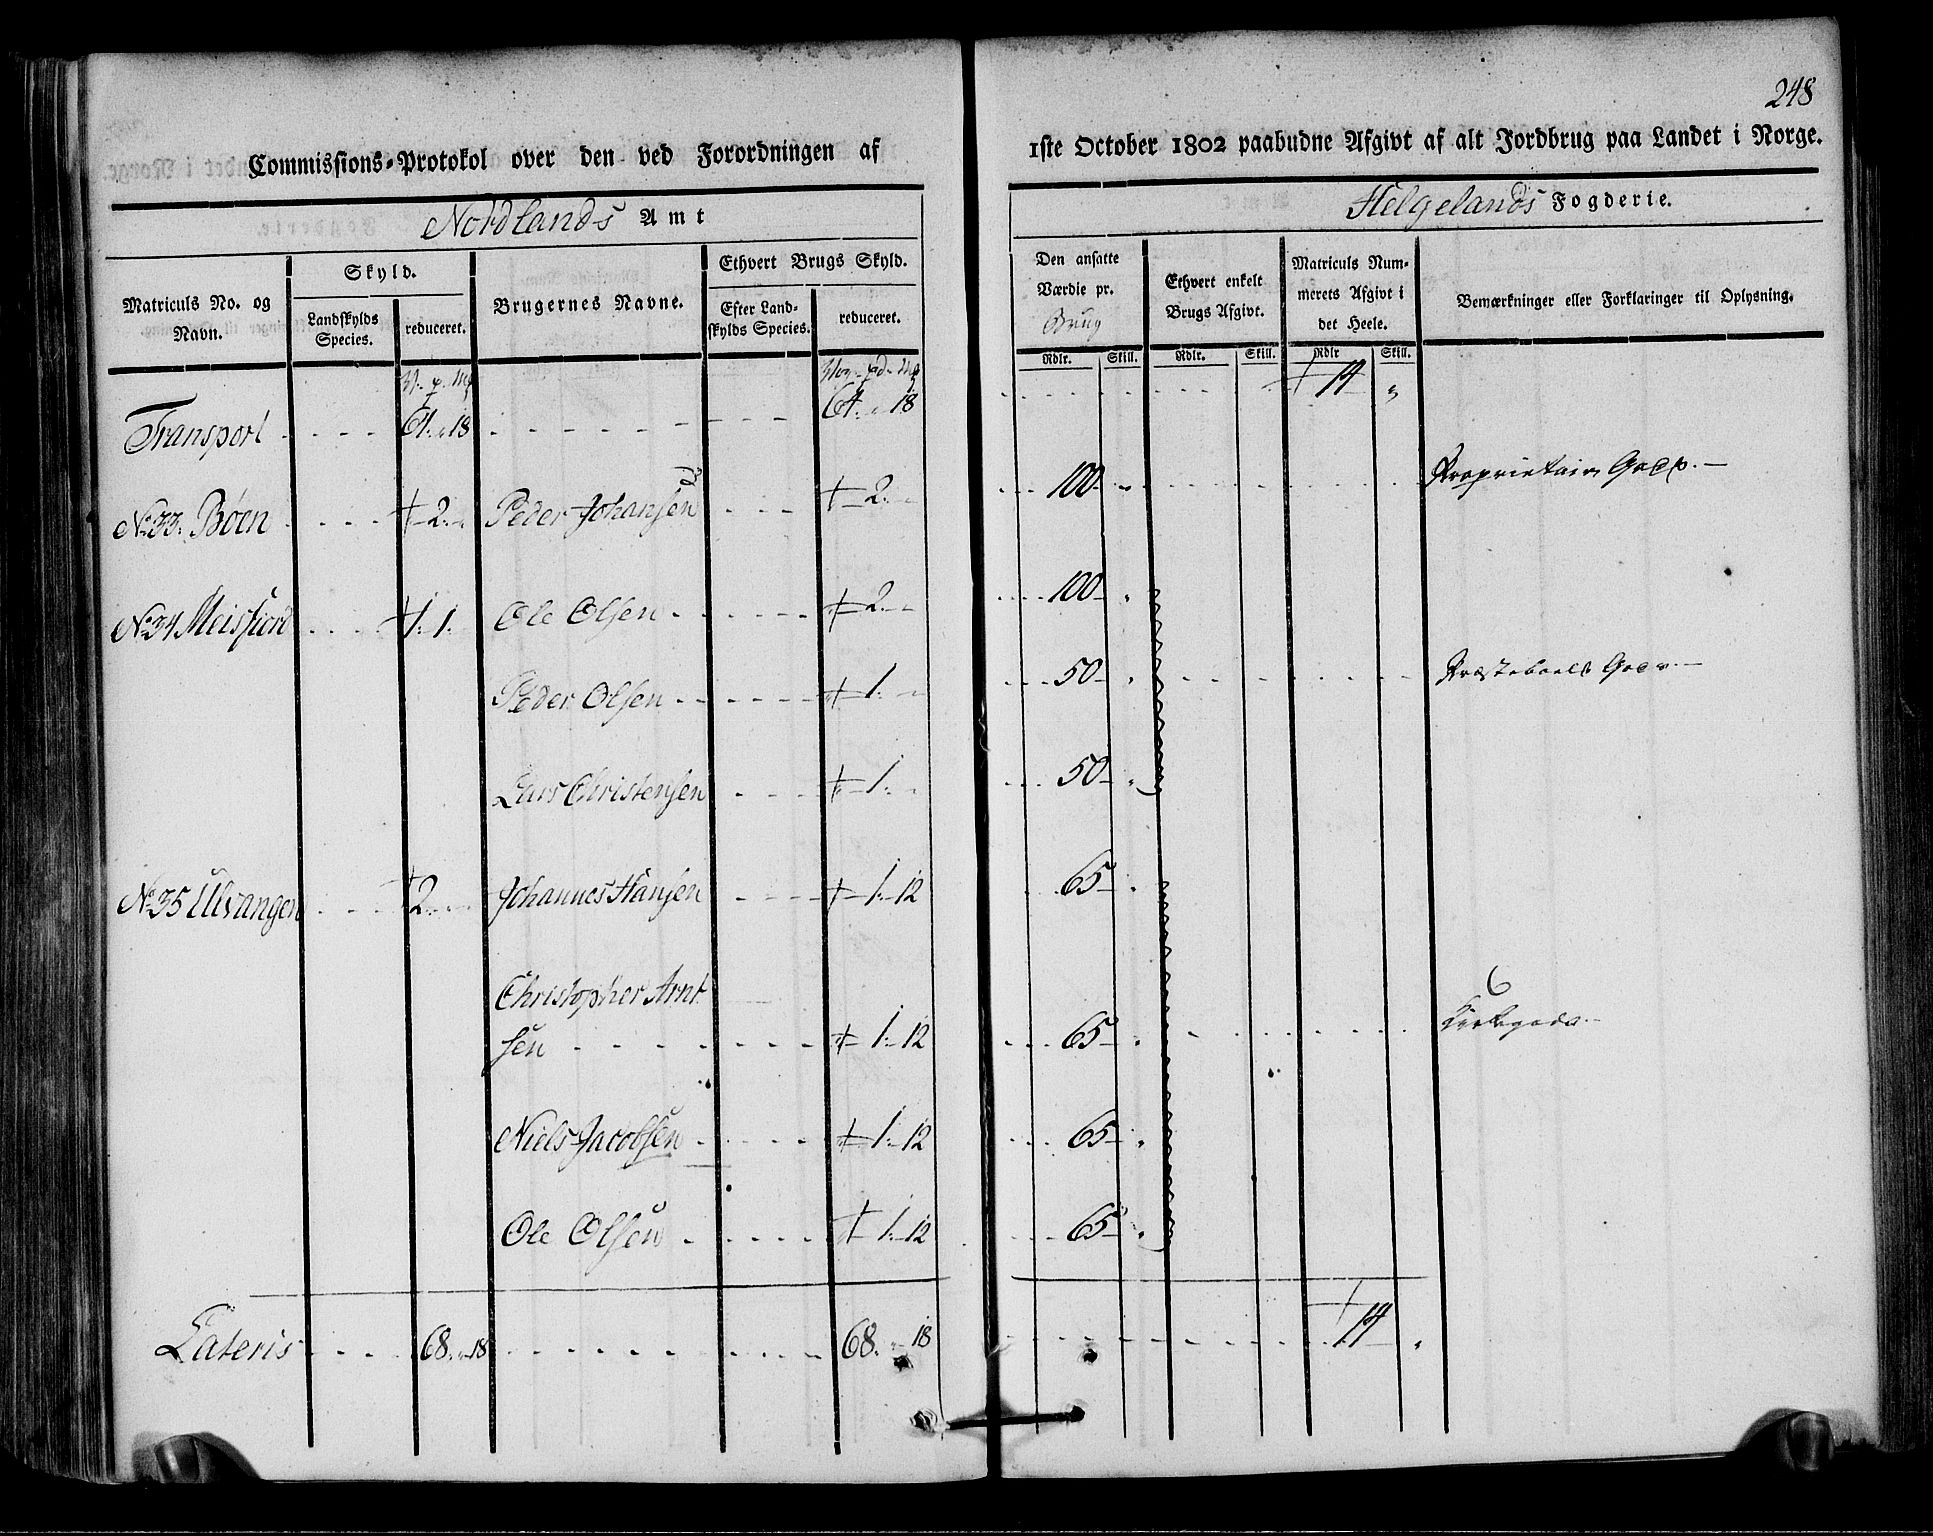 248
Commissions-Protokol over den ved Forordningen af 1ste October 1802 paabudne Afgivt af alt Jordbrug paa Landet i Norge.
Nordlands Amt
Helgelands Fogderie.
Matriculs No. og Navn.
Skyld.
Landskylds Species.
reduceret.
Brugernes Navne.
Ethvert Brugs Skyld.
Efter Landskylds Species.
reduceret.
Den ansatte Værdie pr. Brug
Rdlr. Skill.
Ethvert enkelt Brugs Afgivt.
Rdlr. Skill.
Matriculs Nummerets Afgivt i det Heele.
Rdlr Skill.
Bemærkninger eller Forklaringer til Oplysning.
Transport 18 64 18 14 "
No 33. Böen 2 Peder Johansen 2 100 Proprietair
No 34 Meisfiord 1.1 Ole Olsen 2 100
Peder Olsen 1 50
Lars Christensen 1 50
No 35 Ulvangen 2 Johannes Hansen 1 12 65
Christopher Arnt
sen 1 12 65
Niels Jacobsen 1 12 65
Ole Olsen 1 12 65
Lateris 68 " 18 68 " 18 14 "